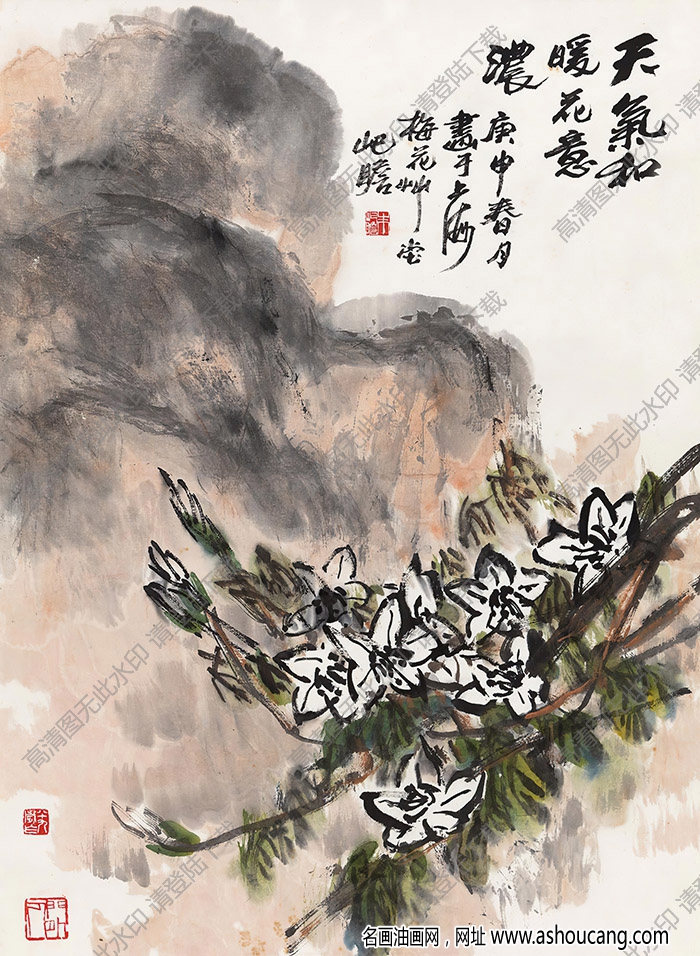 天氣和
暖花意
濃
庚申春月
畫于上海
梅花草堂
屺瞻
高清图无此水印 请登陆下载
名画油画网，网址 www.ashoucang.com